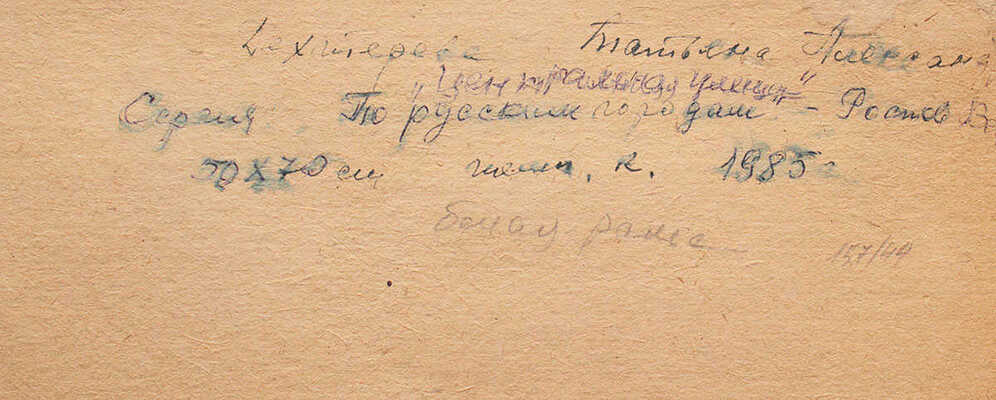 Дехтерева Татьяна Алексан
„Центральная улица"
Серия По русским городам - Ростов В
50х70см темп. к. 1985
белая рама
157/44